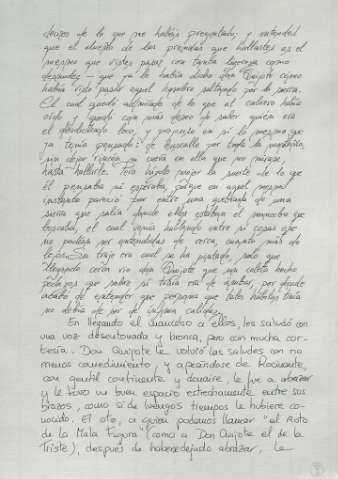 deciros de lo que me habéis preguntado; y entended
que el dueño de las prendas que hallastes es el
mesmo que vistes pasar con tanta ligereza como
desnudez — que ya le había dicho don Quijote cómo
había visto pasar aquel hombre saltando por la sierra.
El cual quedó admirado de lo que al cabrero había
oído y quedó con más deseo de saber quién era
el desdichado loco, y propuso en sí lo mesmo que
ya tenía pensado: de buscalle por toda la montaña,
sin dejar rincón ni cueva en ella que no mirase,
hasta hallarle. Pero hízolo mejor la suerte de lo que
él pensaba ni esperaba, porque en aquel mesmo
instante pareció por entre una quebrada de una
sierra que salía donde ellos estaban el mancebo que
buscaba, el cual venía hablando entre sí cosas que
no podían ser entendidas de cerca, cuanto más de
lejos. Su traje era cual se ha pintado, sólo que
llegando cerca vio don Quijote que un coleto hecho
pedazos que sobre sí traía era de ámbar, por donde
acabó de entender que persona que tales hábitos traía
no debía de ser de ínfima calidad.
En llegando el mancebo a ellos, les saludó con
una voz desentonada y bronca, pero con mucha cor-
tesía. Don Quijote le volvió las saludes con no
menos comedimiento, y apeándose de Rocinante,
con gentil continente y donaire, le fue a abrazar
y le tuvo un buen espacio estrechamente entre sus
brazos, como si de luengos tiempos le hubiera co-
nocido. El otro, a quien podemos llamar "el Roto
de la Mala Figura" (como a Don Quijote el de la
Triste), después de haberse dejado abrazar, le